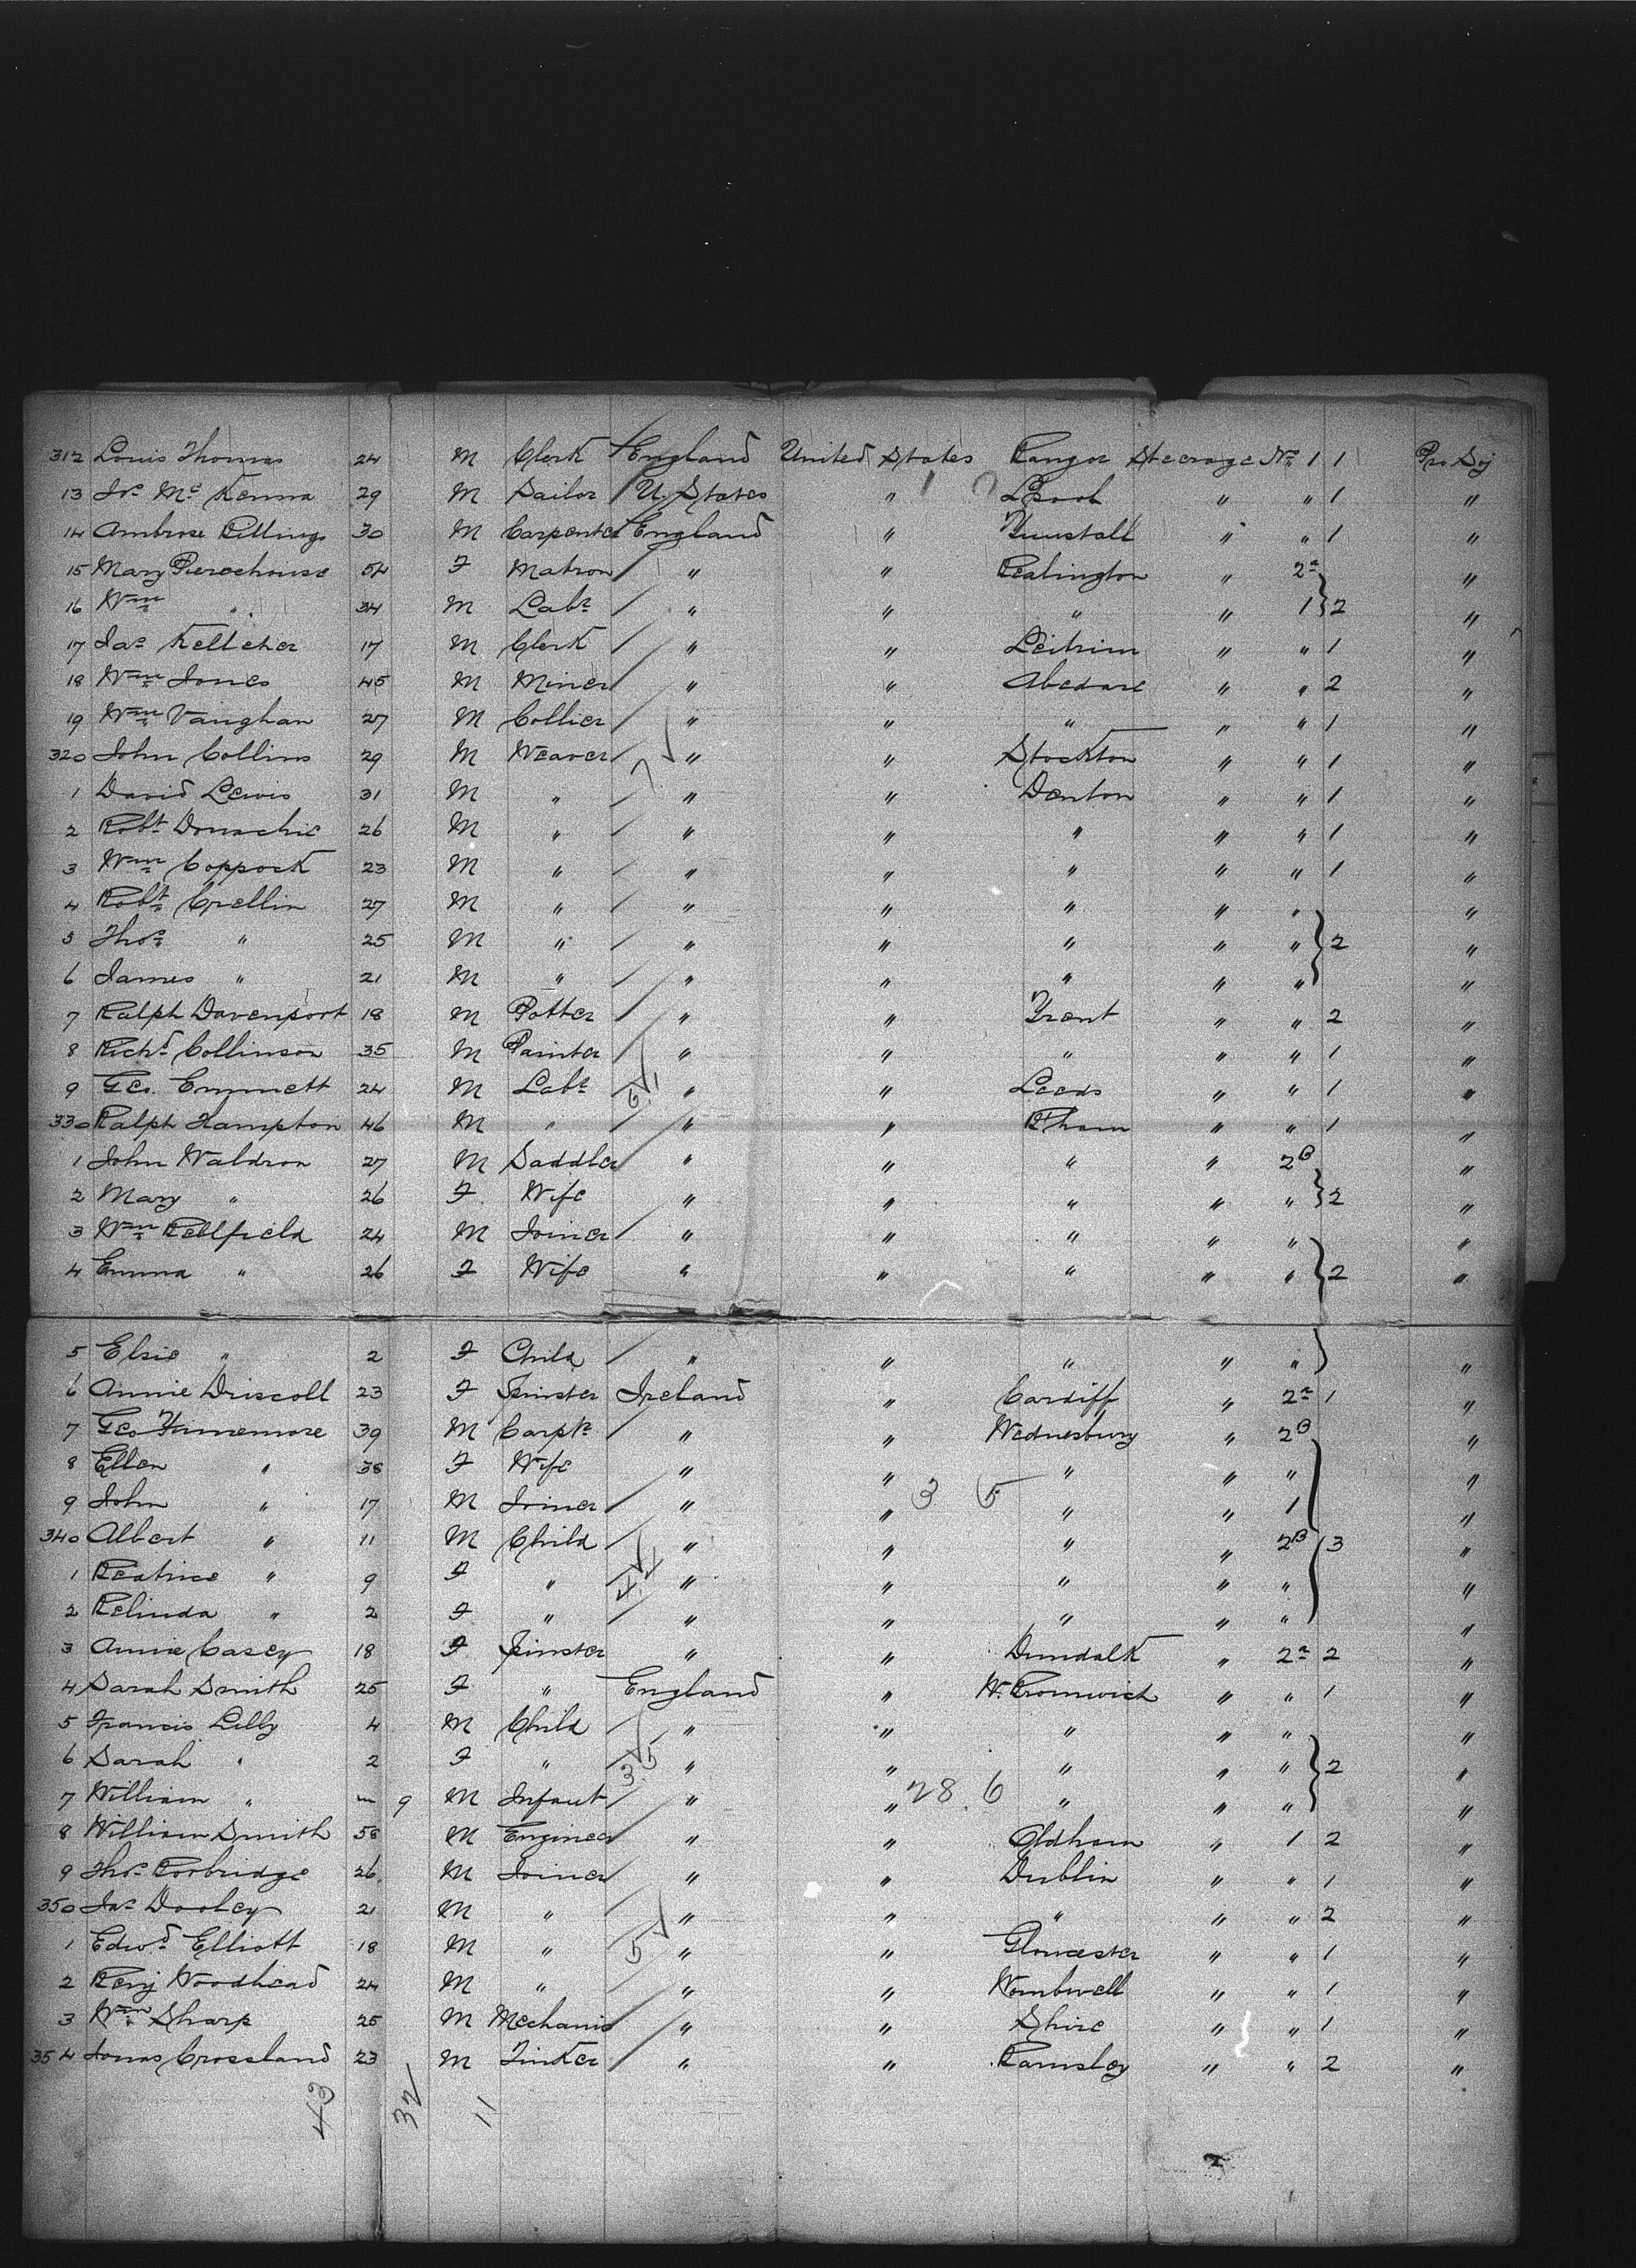 312 Louis Thomas 24 M Clerk England United States Bangor Steerage No 1 1 Pro Soj
13 Jno Mc Kenna 29 M Sailor U. States " L'pool " " 1 "
14 Ambrose Billings 30 M Carpenter England " Tunstall " " 1 "
15 Mary Piercehouse 54 F Matron " " " 2a "
16 Wm " 34 M Labr " " " " 1 2 "
17 Jas Kelleher 17 M Clerk " " Leitrim " " 1 "
18 Wm Jones 45 M Miner " " Abedare " " 2 "
19 Wm Vaughan 27 M Collier " " " " " 1 "
320 John Collins 29 M Weaver " " Stockton " " 1 "
1 David Lewis 31 M " " " Denton " " 1 "
2 Robt Donachie 26 M " " " " " " 1 "
3 Wm Coppock 23 M " " " " " " 1 "
4 Robt Crellin 27 M " " " " " " "
5 Thos " 25 M " " " " " " 2 "
6 James " 21 M " " " " " " "
7 Ralph Davenport 18 M Potter " " Trent " " 2 "
8 Richd Collinson 35 M Painter " " " " " 1 "
9 Geo. Emmett 24 M Labr " " Leeds " " 1 "
330 Ralph Hampton 46 M " " " B'ham " " 1 "
1 John Waldron 27 M Saddler " " " " 2B "
2 Mary " 26 F. Wife " " " " " 2 "
3 Wm Bellfield 24 M Joiner " " " " " "
4 Emma " 26 F Wife " " " " " 2 "
5 Elsie " 2 F Child " " " " " "
6 Annie Driscoll 23 F Spinster Ireland " Cardiff " 2a 1 "
7 Geo Finnemore 39 M Carptr " " Wednesbury " 2B "
8 Ellen " 38 F Wife " " " " " "
9 John " 17 M Joiner " " " " 1 "
340 Albert " 11 M Child " " " " 2B 3 "
1 Beatrice " 9 F " " " " " " "
2 Belinda " 2 F " " " " " " "
3 Annie Casey 18 F Spinster " " Dundalk " 2a 2 "
4 Sarah Smith 25 F " England " W. Bromwich " " 1 "
5 Francis Lilly 4 M Child " " " " " "
6 Sarah " 2 F " " " " " " 2 "
7 William " 9 M Infant " " " " " "
8 William Smith 58 M Engineer " " Oldham " 1 2 "
9 Thos Borbridge 26 M Joiner " " Dublin " " 1 "
350 Jas Dooley 21 M " " " " " " 2 "
1 Edwd Elliott 18 M " " " Gloucester " " 1 "
2 Benj Woodhead 24 M " " " Wombwell " " 1 "
3 Wm Sharp 25 M Mechanic " " Shire " " 1 "
354 Jonas Crossland 23 M Tinker " " Barnsley " " 2 "
43 32 11